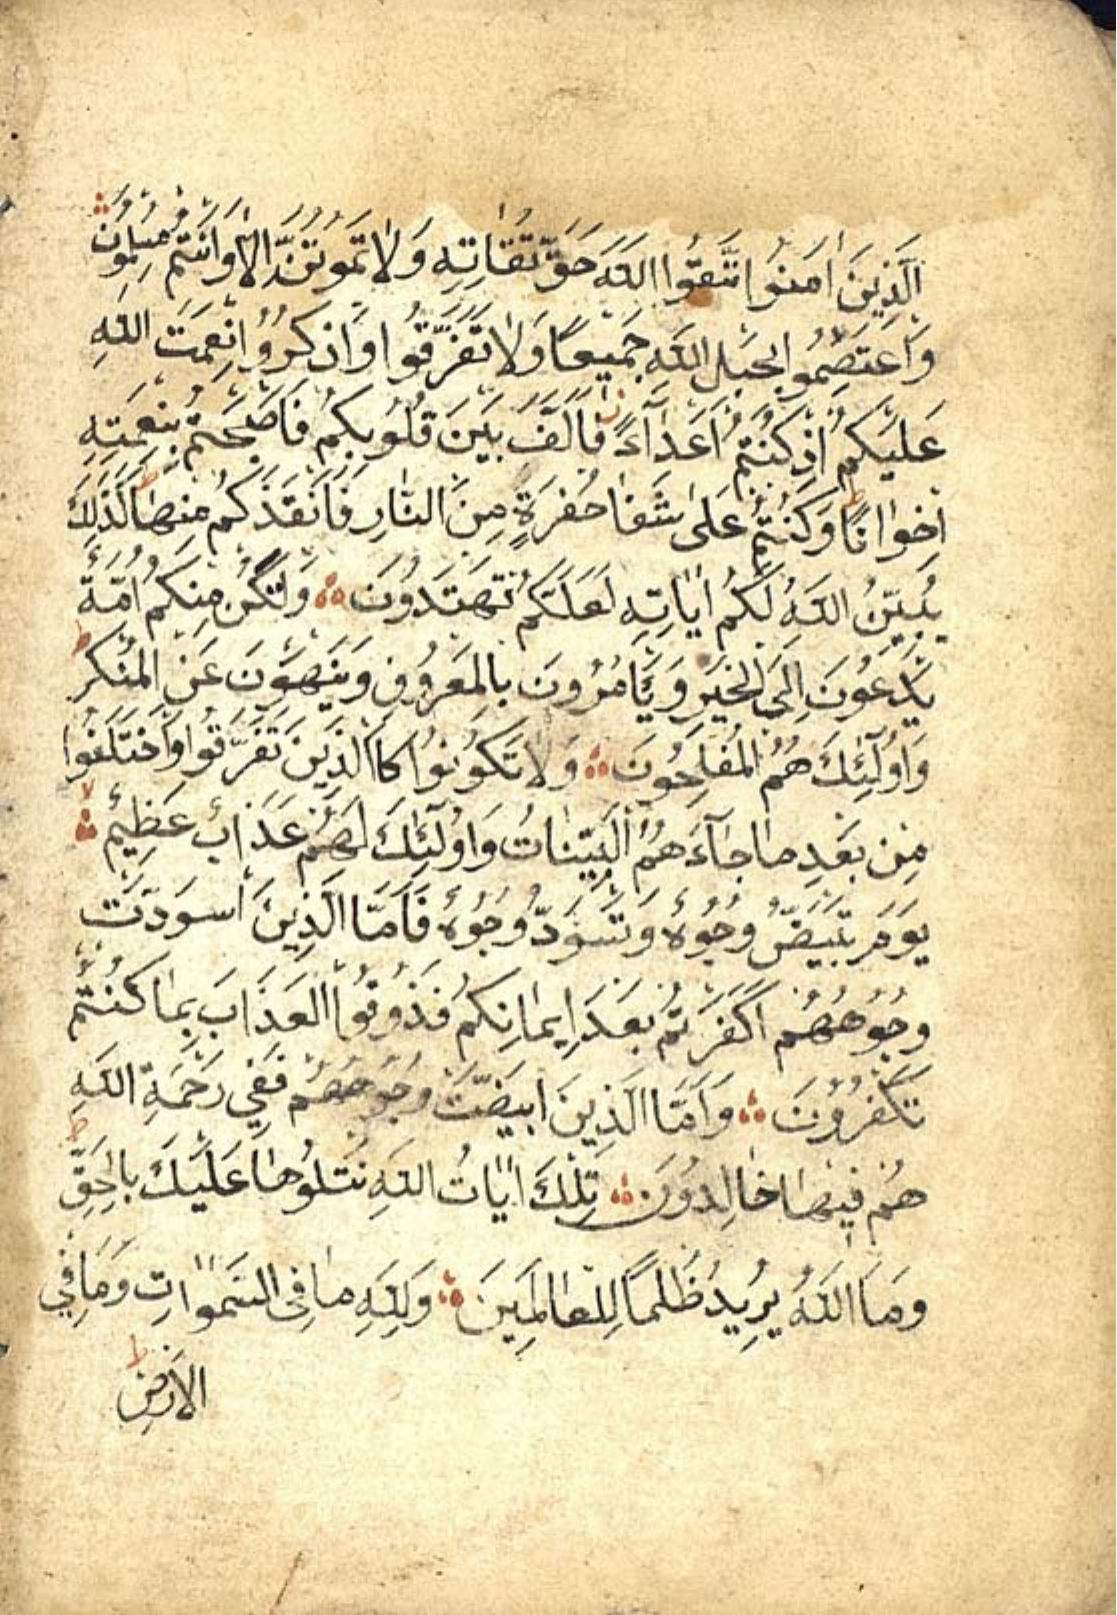 الَّذِينَ اٰمَنُوا اتَّقُوا اللّٰهَ حَقَّ تُقَاتِهِ وَلَا تَمُوتُنَّ اِلَّا وَاَنْتُمْ مُسْلِمُونَ
وَاعْتَصِمُوا بِحَبْلِ اللّٰهِ جَمِيعًا وَلَا تَفَرَّقُوا وَاذْكُرُوا نِعْمَتَ اللّٰهِ
عَلَيْكُمْ اِذْ كُنْتُمْ اَعْدَآءً فَاَلَّفَ بَيْنَ قُلُوبِكُمْ فَاَصْبَحْتُمْ بِنِعْمَتِهِ
اِخْوَانًا ط وَكُنْتُمْ عَلٰى شَفَا حُفْرَةٍ مِنَ النَّارِ فَاَنْقَذَكُمْ مِنْهَا ط كَذٰلِكَ
يُبَيِّنُ اللّٰهُ لَكُمْ اٰيَاتِهِ لَعَلَّكُمْ تَهْتَدُونَ ۞ وَلْتَكُنْ مِنْكُمْ اُمَّةٌ
يَدْعُونَ اِلَى الْخَيْرِ وَيَاْمُرُونَ بِالْمَعْرُوفِ وَيَنْهَوْنَ عَنِ الْمُنْكَرِ ط
وَاُولٰٓئِكَ هُمُ الْمُفْلِحُونَ ۞ وَلَا تَكُونُوا كَالَّذِينَ تَفَرَّقُوا وَاخْتَلَفُوا
مِنْ بَعْدِ مَا جَآءَهُمُ الْبَيِّنَاتُ وَاُولٰٓئِكَ لَهُمْ عَذَابٌ عَظِيمٌ لا
يَوْمَ تَبْيَضُّ وُجُوهٌ وَتَسْوَدُّ وُجُوهٌ فَاَمَّا الَّذِينَ اسْوَدَّتْ
وُجُوهُهُمْ اَكَفَرْتُمْ بَعْدَ اِيمَانِكُمْ فَذُوقُوا الْعَذَابَ بِمَا كُنْتُمْ
تَكْفُرُونَ ۞ وَاَمَّا الَّذِينَ ابْيَضَّتْ وُجُوهُهُمْ فَفِي رَحْمَةِ اللّٰهِ ط
هُمْ فِيهَا خَالِدُونَ ۞ تِلْكَ اٰيَاتُ اللّٰهِ نَتْلُوهَا عَلَيْكَ بِالْحَقِّ
وَمَا اللّٰهُ يُرِيدُ ظُلْمًا لِلْعَالَمِينَ ۞ وَلِلّٰهِ مَا فِي السَّمٰوَاتِ وَمَا فِي
الْاَرْضِ ط